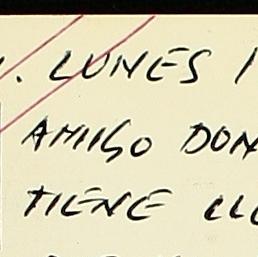 LUNES
AMIGO DON
TIENE